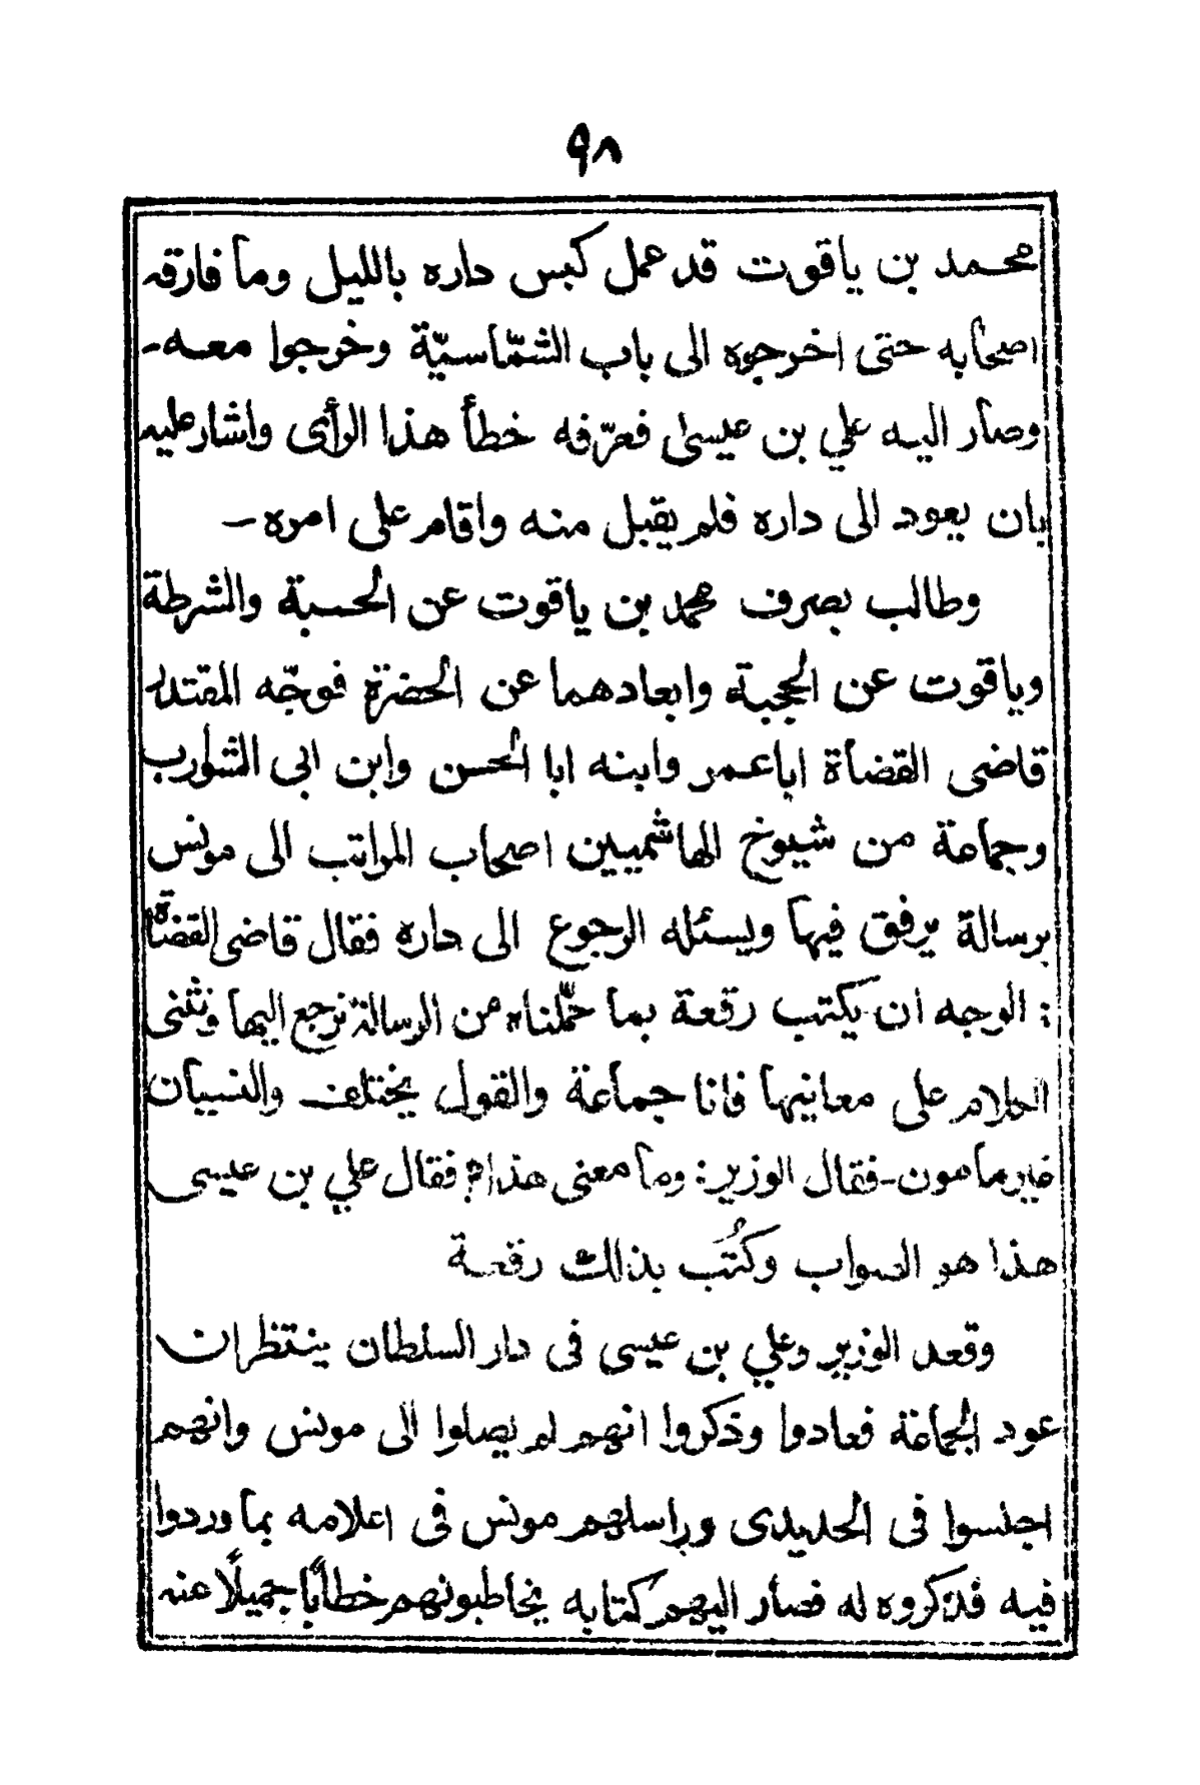 ٩٨
محمد بن ياقوت قد عمل كبس داره بالليل وما فارقه
اصحابه حتى اخرجوه الى باب الشمّاسيّة وخرجوا معه-
وصار اليه علي بن عيسىٰ فعرّفه خطأ هذا الرأى واشار عليه
بان يعود الى داره فلم يقبل منه واقام على امره-
وطالب بصرف محمد بن ياقوت عن الحسبة والشرطة
وياقوت عن الحجبة وابعادهما عن الحضرة فوجّه المقتدر
قاضى القضاة اباعمر وابنه ابا الحسن وابن ابى الشوارب
وجماعة من شيوخ الهاشميين اصحاب المراتب الى مونس
برسالة يرفق فيها ويسئله الرجوع الى داره فقال قاضى القضاة
: الوجه ان يكتب رقعة بما حمّلناه من الرسالة نرجع اليها ونثنى
الكلام على معانيها فانا جماعة والقول يختلف والنسيان
غير مامون-فقال الوزير: وما معنى هذا؟ فقال علي بن عيسى
هذا هو الصواب وكُتب بذالك رقعة
وقعد الوزير وعلي بن عيسى فى دار السلطان ينتظران
عود الجماعة فعادوا وذكروا انهم لم يصلوا الى مونس وانهم
اجلسوا فى الحديدى وراسلهم مونس فى اعلامه بما وردوا
فيه فذكروه له فصار اليهم كتابه يخاطبونهم خطابًا جميلًا عنه